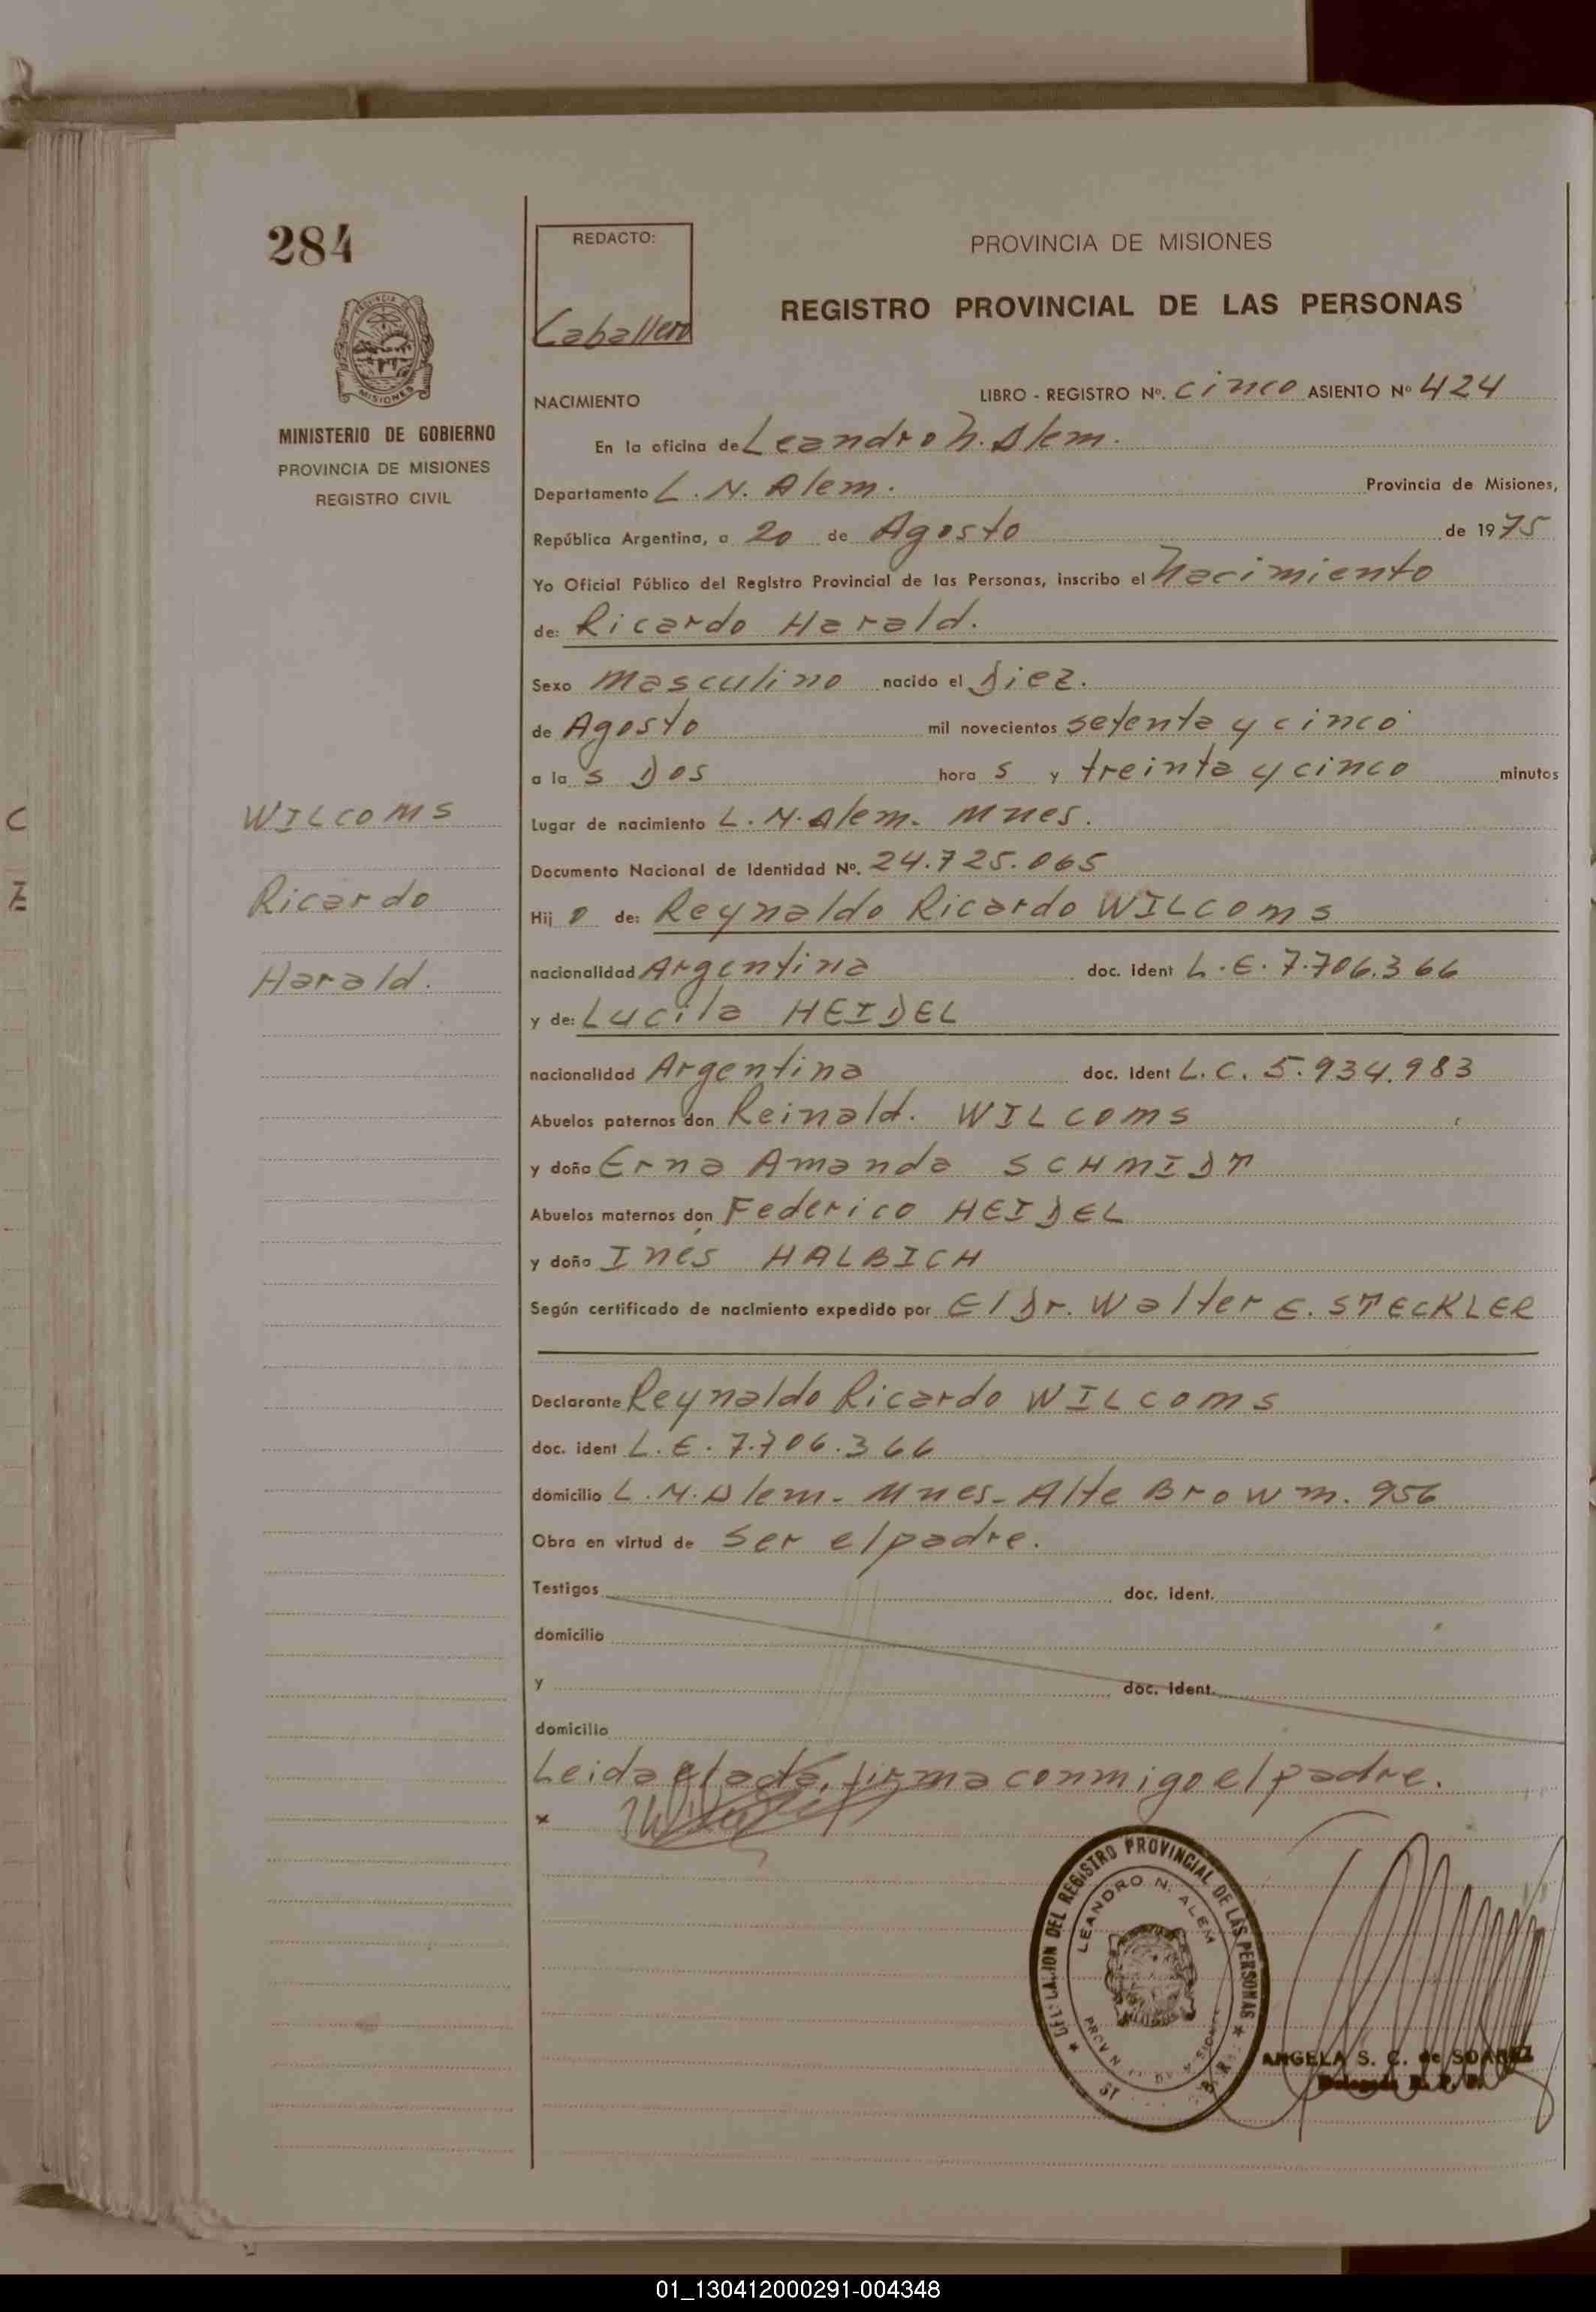 284
MINISTERIO DE GOBIERNO
PROVINCIA DE MISIONES
REGISTRO CIVIL
REDACTO:
Caballero
PROVINCIA DE MISIONES
REGISTRO PROVINCIAL DE LAS PERSONAS
NACIMIENTO
LIBRO - REGISTRO Nº. cinco ASIENTO Nº 424
En la oficina de Leandro N. Alem.
Departamento L. N. Alem. Provincia de Misiones,
República Argentina, a 20 de Agosto de 1975
Yo Oficial Público del Registro Provincial de las Personas, inscribo el Nacimiento
de: Ricardo Harald.
Sexo Masculino nacido el Diez.
de Agosto mil novecientos setenta y cinco
a la s Dos hora s y treinta y cinco minutos
WILCOMS
Ricardo
Harald.
Lugar de nacimiento L. N. Alem. Mnes.
Documento Nacional de Identidad Nº. 24.725.065
Hij o de: Reynaldo Ricardo WILCOMS
nacionalidad Argentina doc. ident L. E. 7.706.366
y de: Lucila HEIDEL
nacionalidad Argentina doc. ident L. C. 5.934.983
Abuelos paternos don Reinald. WILCOMS
y doña Erna Amanda SCHMIDT
Abuelos maternos don Federico HEIDEL
y doña Inés HALBICH
Según certificado de nacimiento expedido por El Dr. Walter E. STECKLER
Declarante Reynaldo Ricardo WILCOMS
doc. ident L. E. 7.706.366
domicilio L. N. Alem. Mnes. Alte Browm. 956
Obra en virtud de ser el padre.
Testigos doc. ident.
domicilio
y doc. ident.
domicilio
Leida el acta, firma conmigo el padre.
x
DELEGACION DEL REGISTRO PROVINCIAL DE LAS PERSONAS
LEANDRO N. ALEM
ANGELA S. C. de SOAREZ
01_130412000291-004348